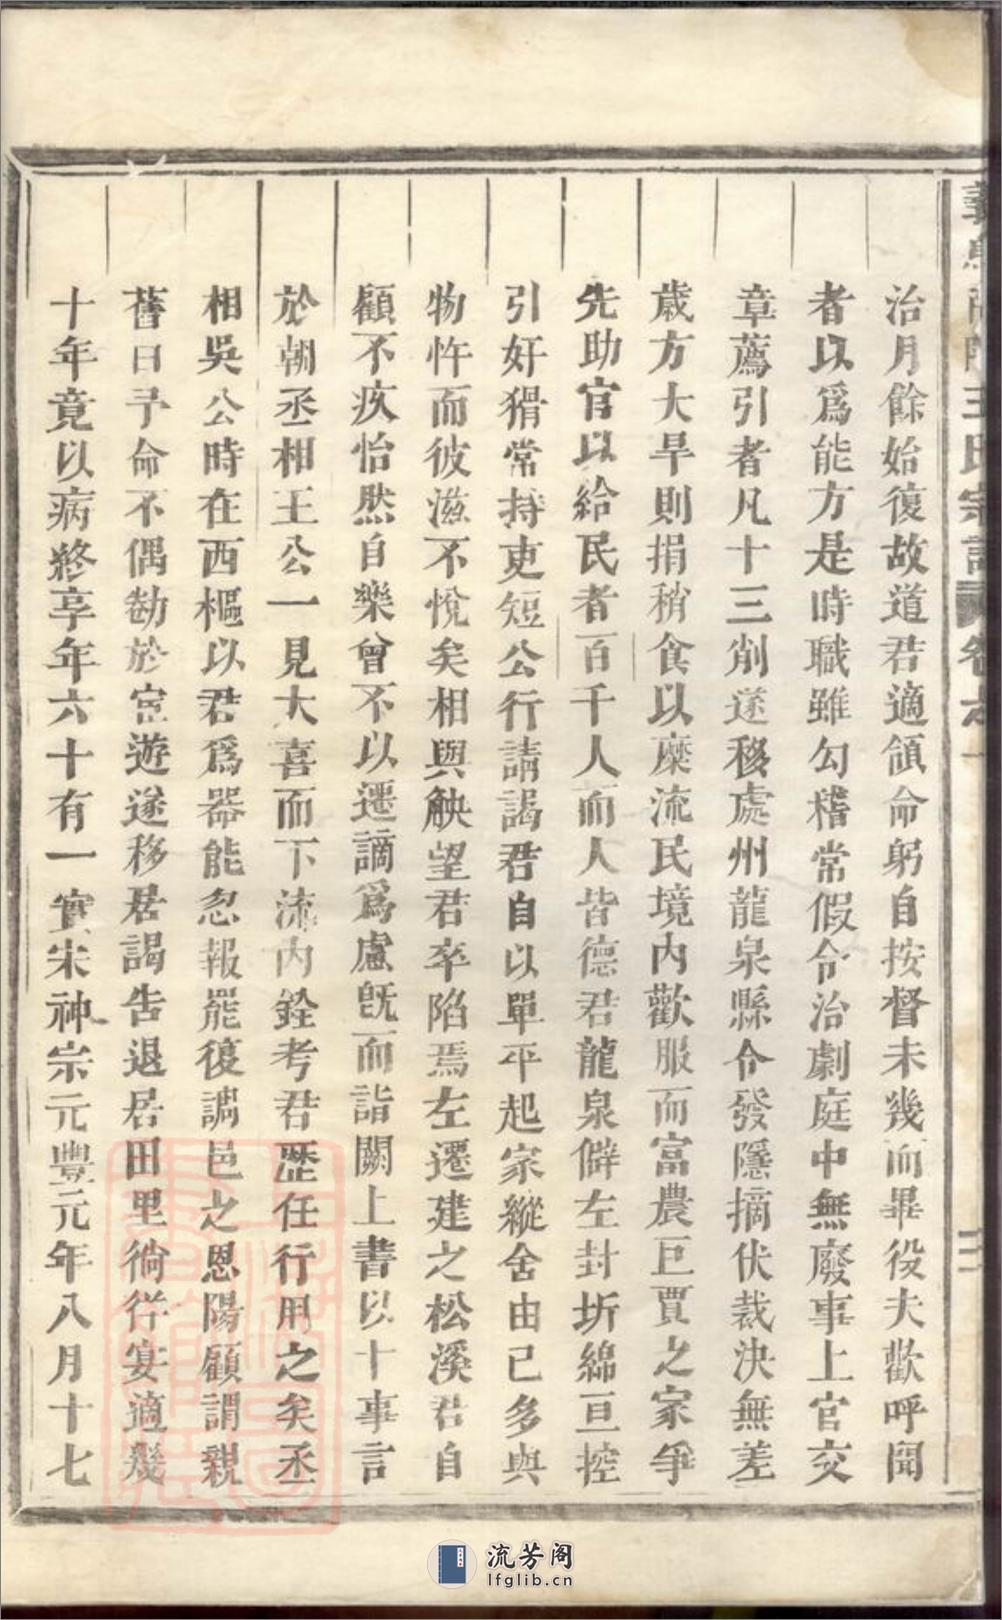 治月餘始復故道君適領命躬自按督未幾而畢役夫歡呼聞
者以爲能方是時職雖勾稽常假令治劇庭中無廢事上官交
章薦引者凡十三削遂移處州龍泉縣令發隱摘伏裁決無差
歲方大旱則捐稍食以糜流民境內歡服而富農巨賈之家爭
先助官以給民者百千人而人皆德君龍泉僻左封圻綿亘控
引奸猾常持吏短公行請謁君自以單平起家縱舍由己多與
物忤而彼滋不悅矣相與觖望君卒陷焉左遷建之松溪君自
顧不疚怡然自樂曾不以遷謫爲慮既而詣闕上書以十事言
於朝丞相王公一見大喜而下流內銓考君歷任行用之矣丞
相吳公時在西樞以君爲器能忽報罷復調邑之恩陽顧謂親
舊曰予命不偶勌於宦遊遂移居謁告退居田里徜徉宴適幾
十年竟以病終享年六十有一實宋神宗元豐元年八月十七
王氏宗譜 卷之一
流芳阁
lfglib.cn